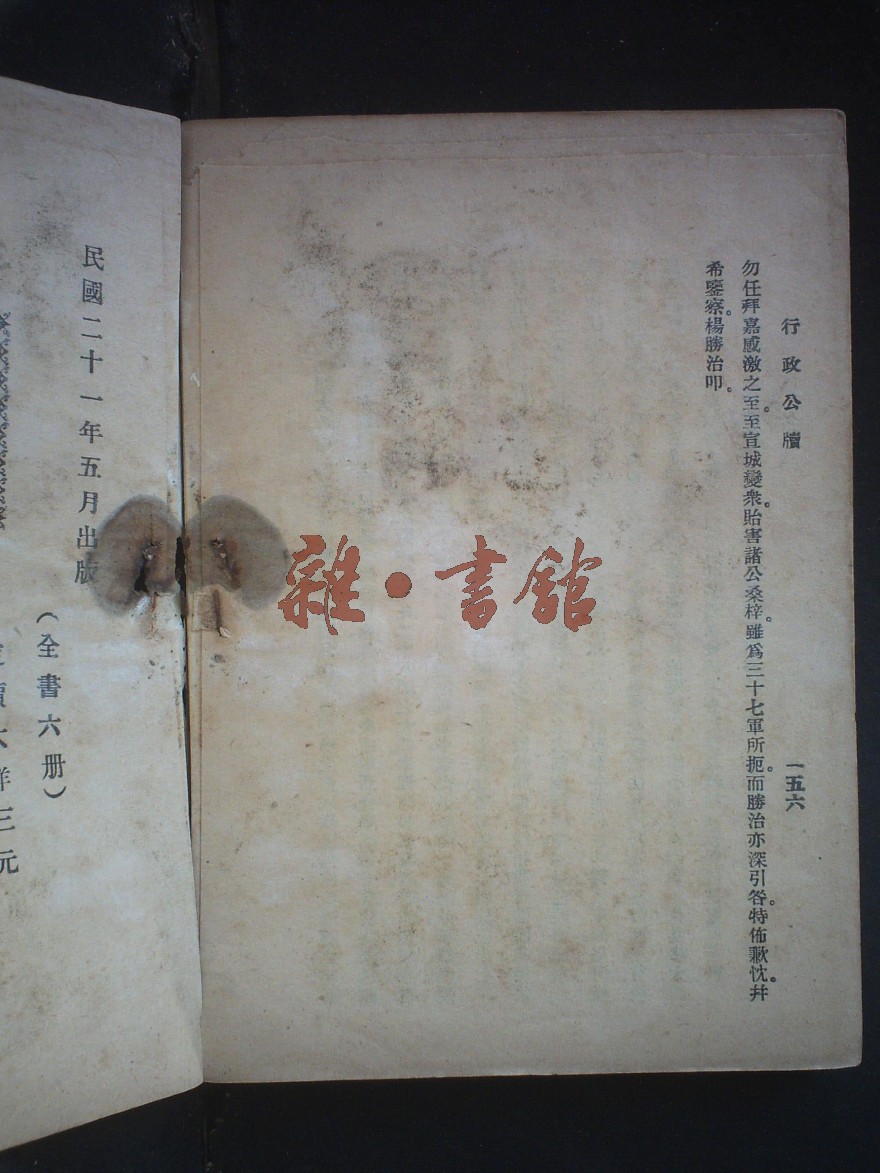 行政公牘
一五六
勿任拜嘉感激之至。至宣城變衆。貽害諸公桑梓。雖爲三十七軍所扼。而勝治亦深引咎。特佈歉忱。幷
希鑒察。楊勝治叩。
雜·書館
民國二十一年五月出版
(全書六册)
洋三元